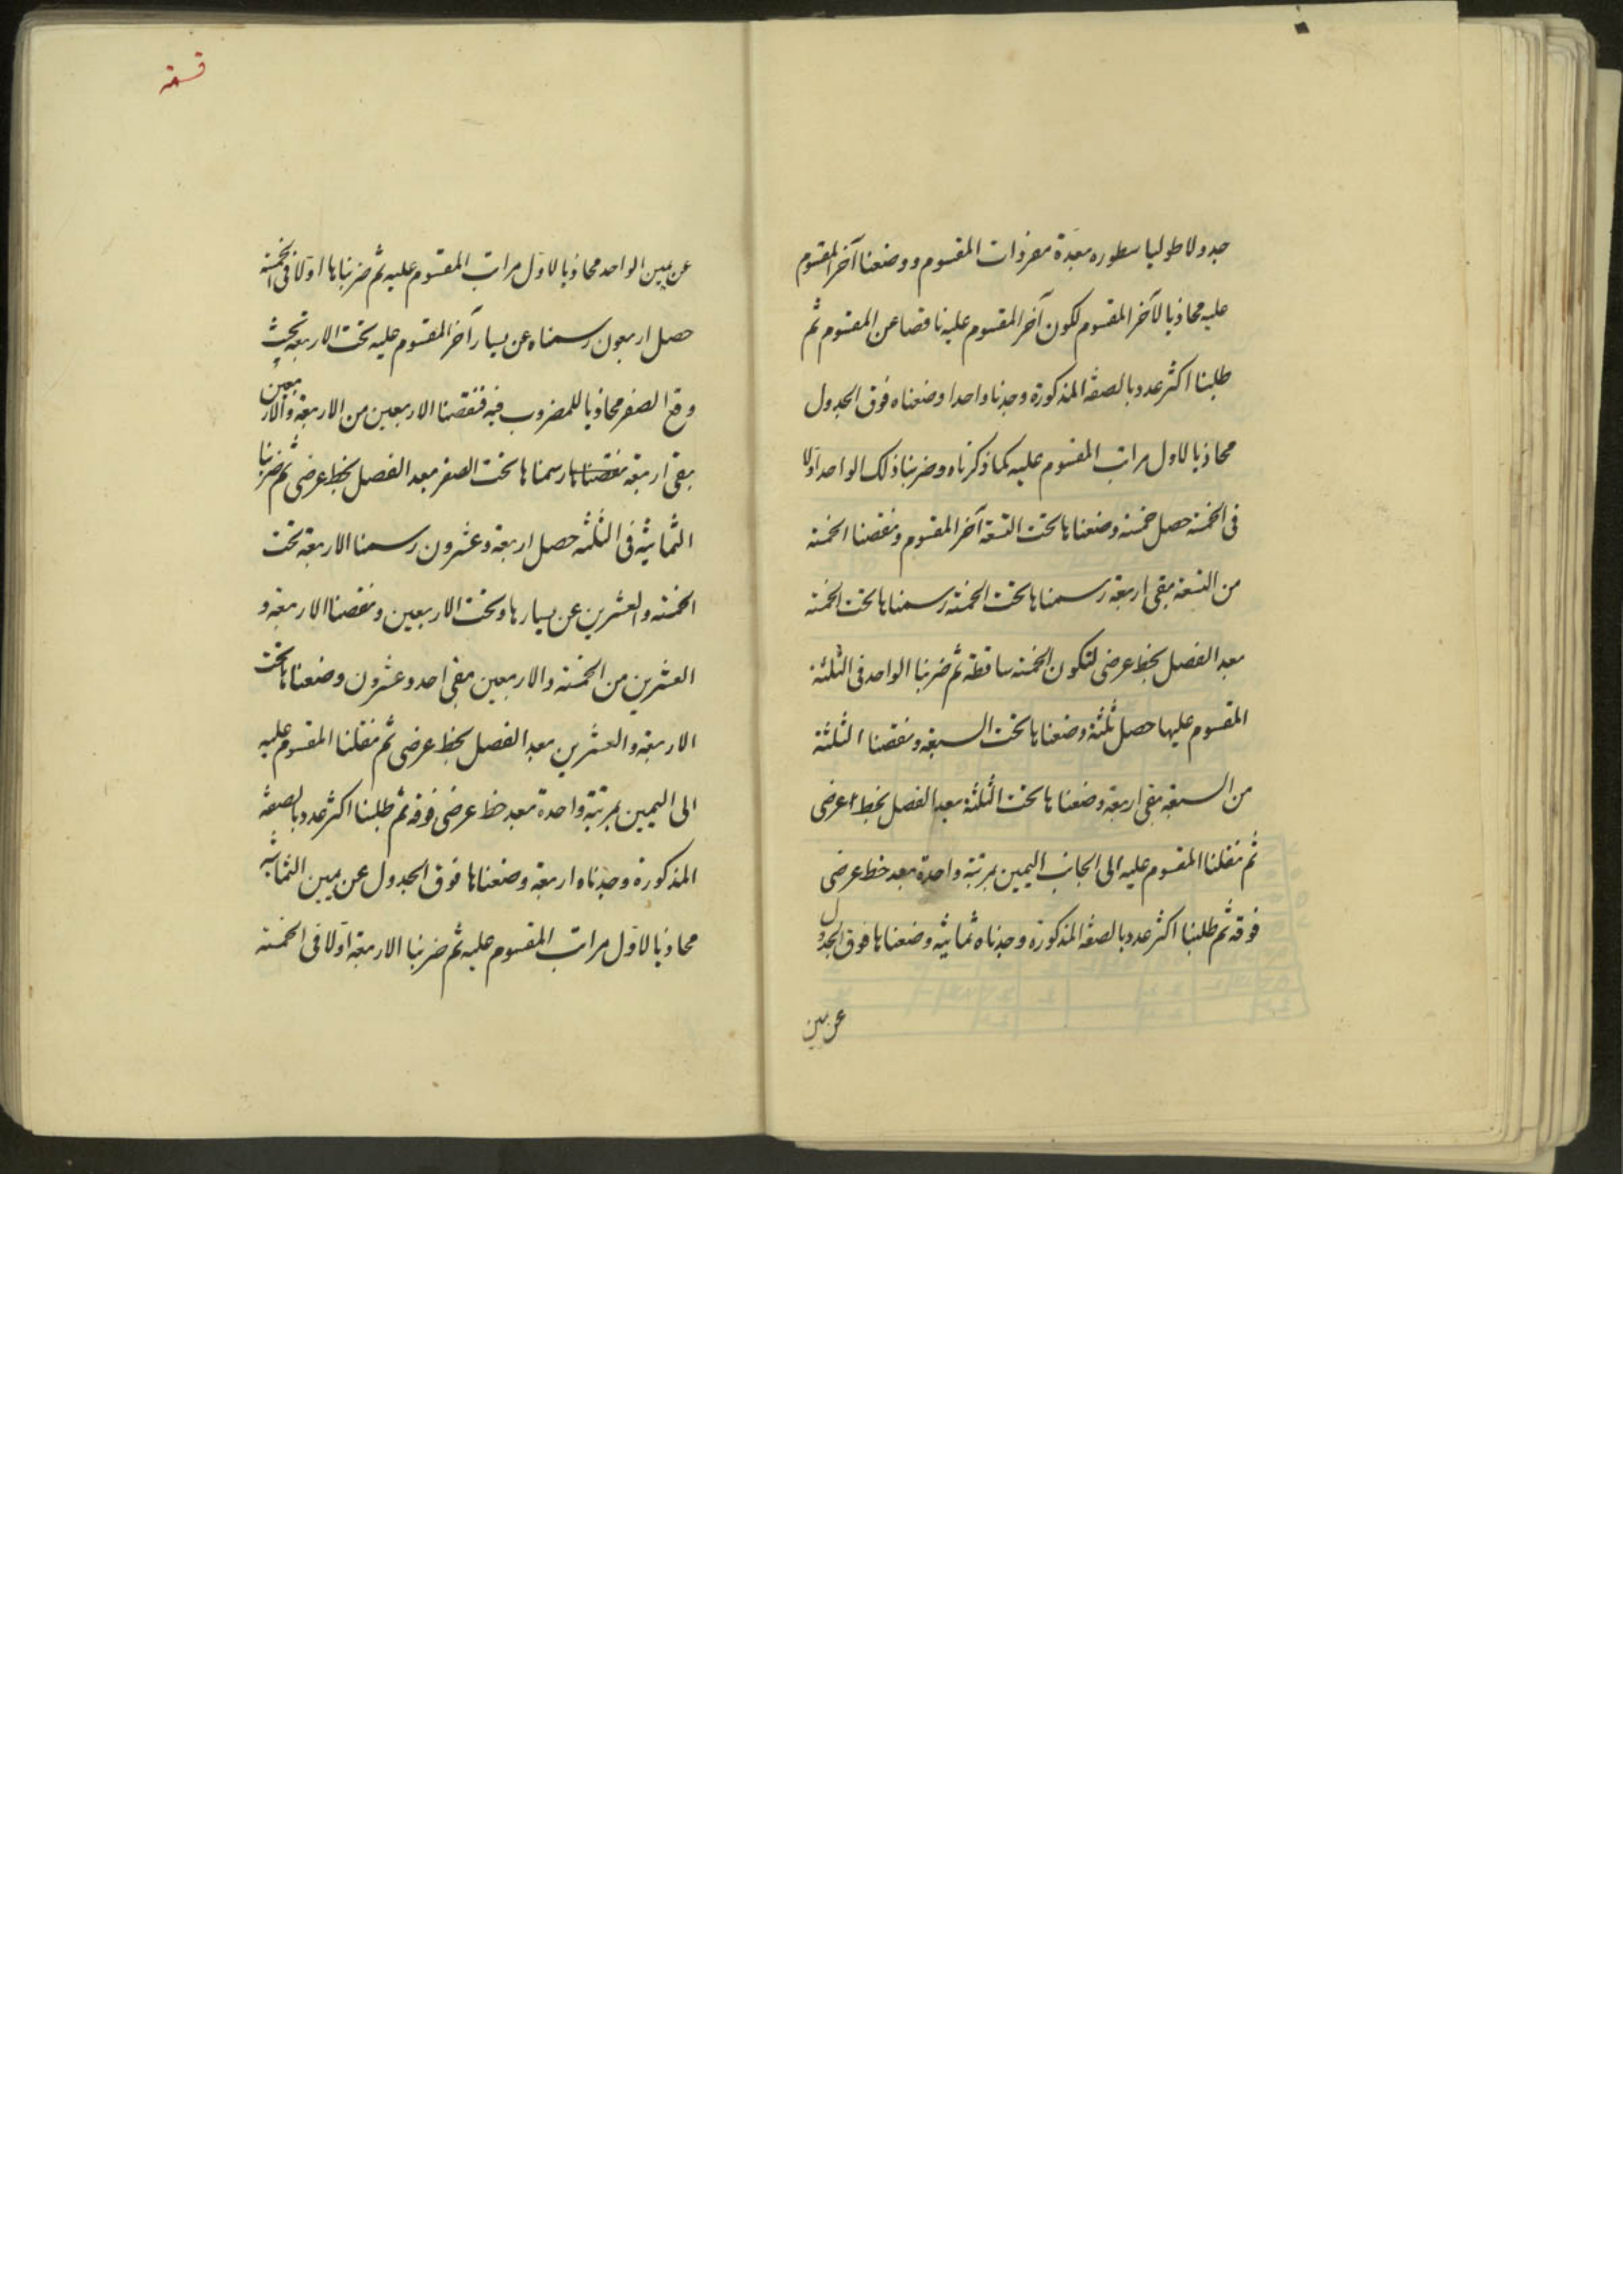 جدولا طوليا سطوره بعدة مفردات المقسوم ووضعنا آخر المقسوم
عليه محاذيا لآخر المقسوم لكون آخر المقسوم عليه ناقصا عن المقسوم ثم
طلبنا اكثر عدد بالصفة المذكورة وجدنا واحدا وضعناه فوق الجدول
محاذيا لاول مراتب المقسوم عليه كما ذكرناه وضربنا ذلك الواحد اولا
فى الخمسة حصل خمسة وضعناها تحت التسعة آخر المقسوم ونقصنا الخمسة
من التسعة بقى اربعة رسمناها تحت الخمسة رسمناها تحت الخمسة
بعد الفصل بخط عرضى لتكون الخمسة ساقطة ثم ضربنا الواحد فى الثلثة
المقسوم عليها حصل ثلثة وضعناها تحت السبعة ونقصنا الثلثة
من السبعة بقى اربعة وضعناها تحت الثلثة بعد الفصل بخط عرضى
ثم نقلنا المقسوم عليه الى الجانب اليمين بمرتبة واحدة بعد خط عرضى
فوقه ثم طلبنا اكثر عدد بالصفة المذكورة وجدناه ثمانية وضعناها فوق الجدول
عن يمين
قسمة
عن يمين الواحد محاذيا لاول مراتب المقسوم عليه ثم ضربناها اولا فى الخمسة
حصل اربعون رسمناه عن يسار آخر المقسوم عليه تحت الاربعة بحيث
وقع الصفر محاذيا للمضروب فيه فنقصنا الاربعين من الاربعة والاربعين
بقى اربعة نقصناها رسمناها تحت الصفر بعد الفصل بخط عرضى ثم ضربنا
الثمانية فى الثلثة حصل اربعة وعشرون رسمنا الاربعة تحت
الخمسة والعشرين عن يسارها وتحت الاربعين ونقصنا الاربعة و
العشرين من الخمسة والاربعين بقى احد وعشرون وضعناها تحت
الاربعة والعشرين بعد الفصل بخط عرضى ثم نقلنا المقسوم عليه
الى اليمين بمرتبة واحدة بعد خط عرضى فوقه ثم طلبنا اكثر عدد بالصفة
المذكورة وجدناه اربعة وضعناها فوق الجدول عن يمين الثمانية
محاذيا لاول مراتب المقسوم عليه ثم ضربنا الاربعة اولا فى الخمسة